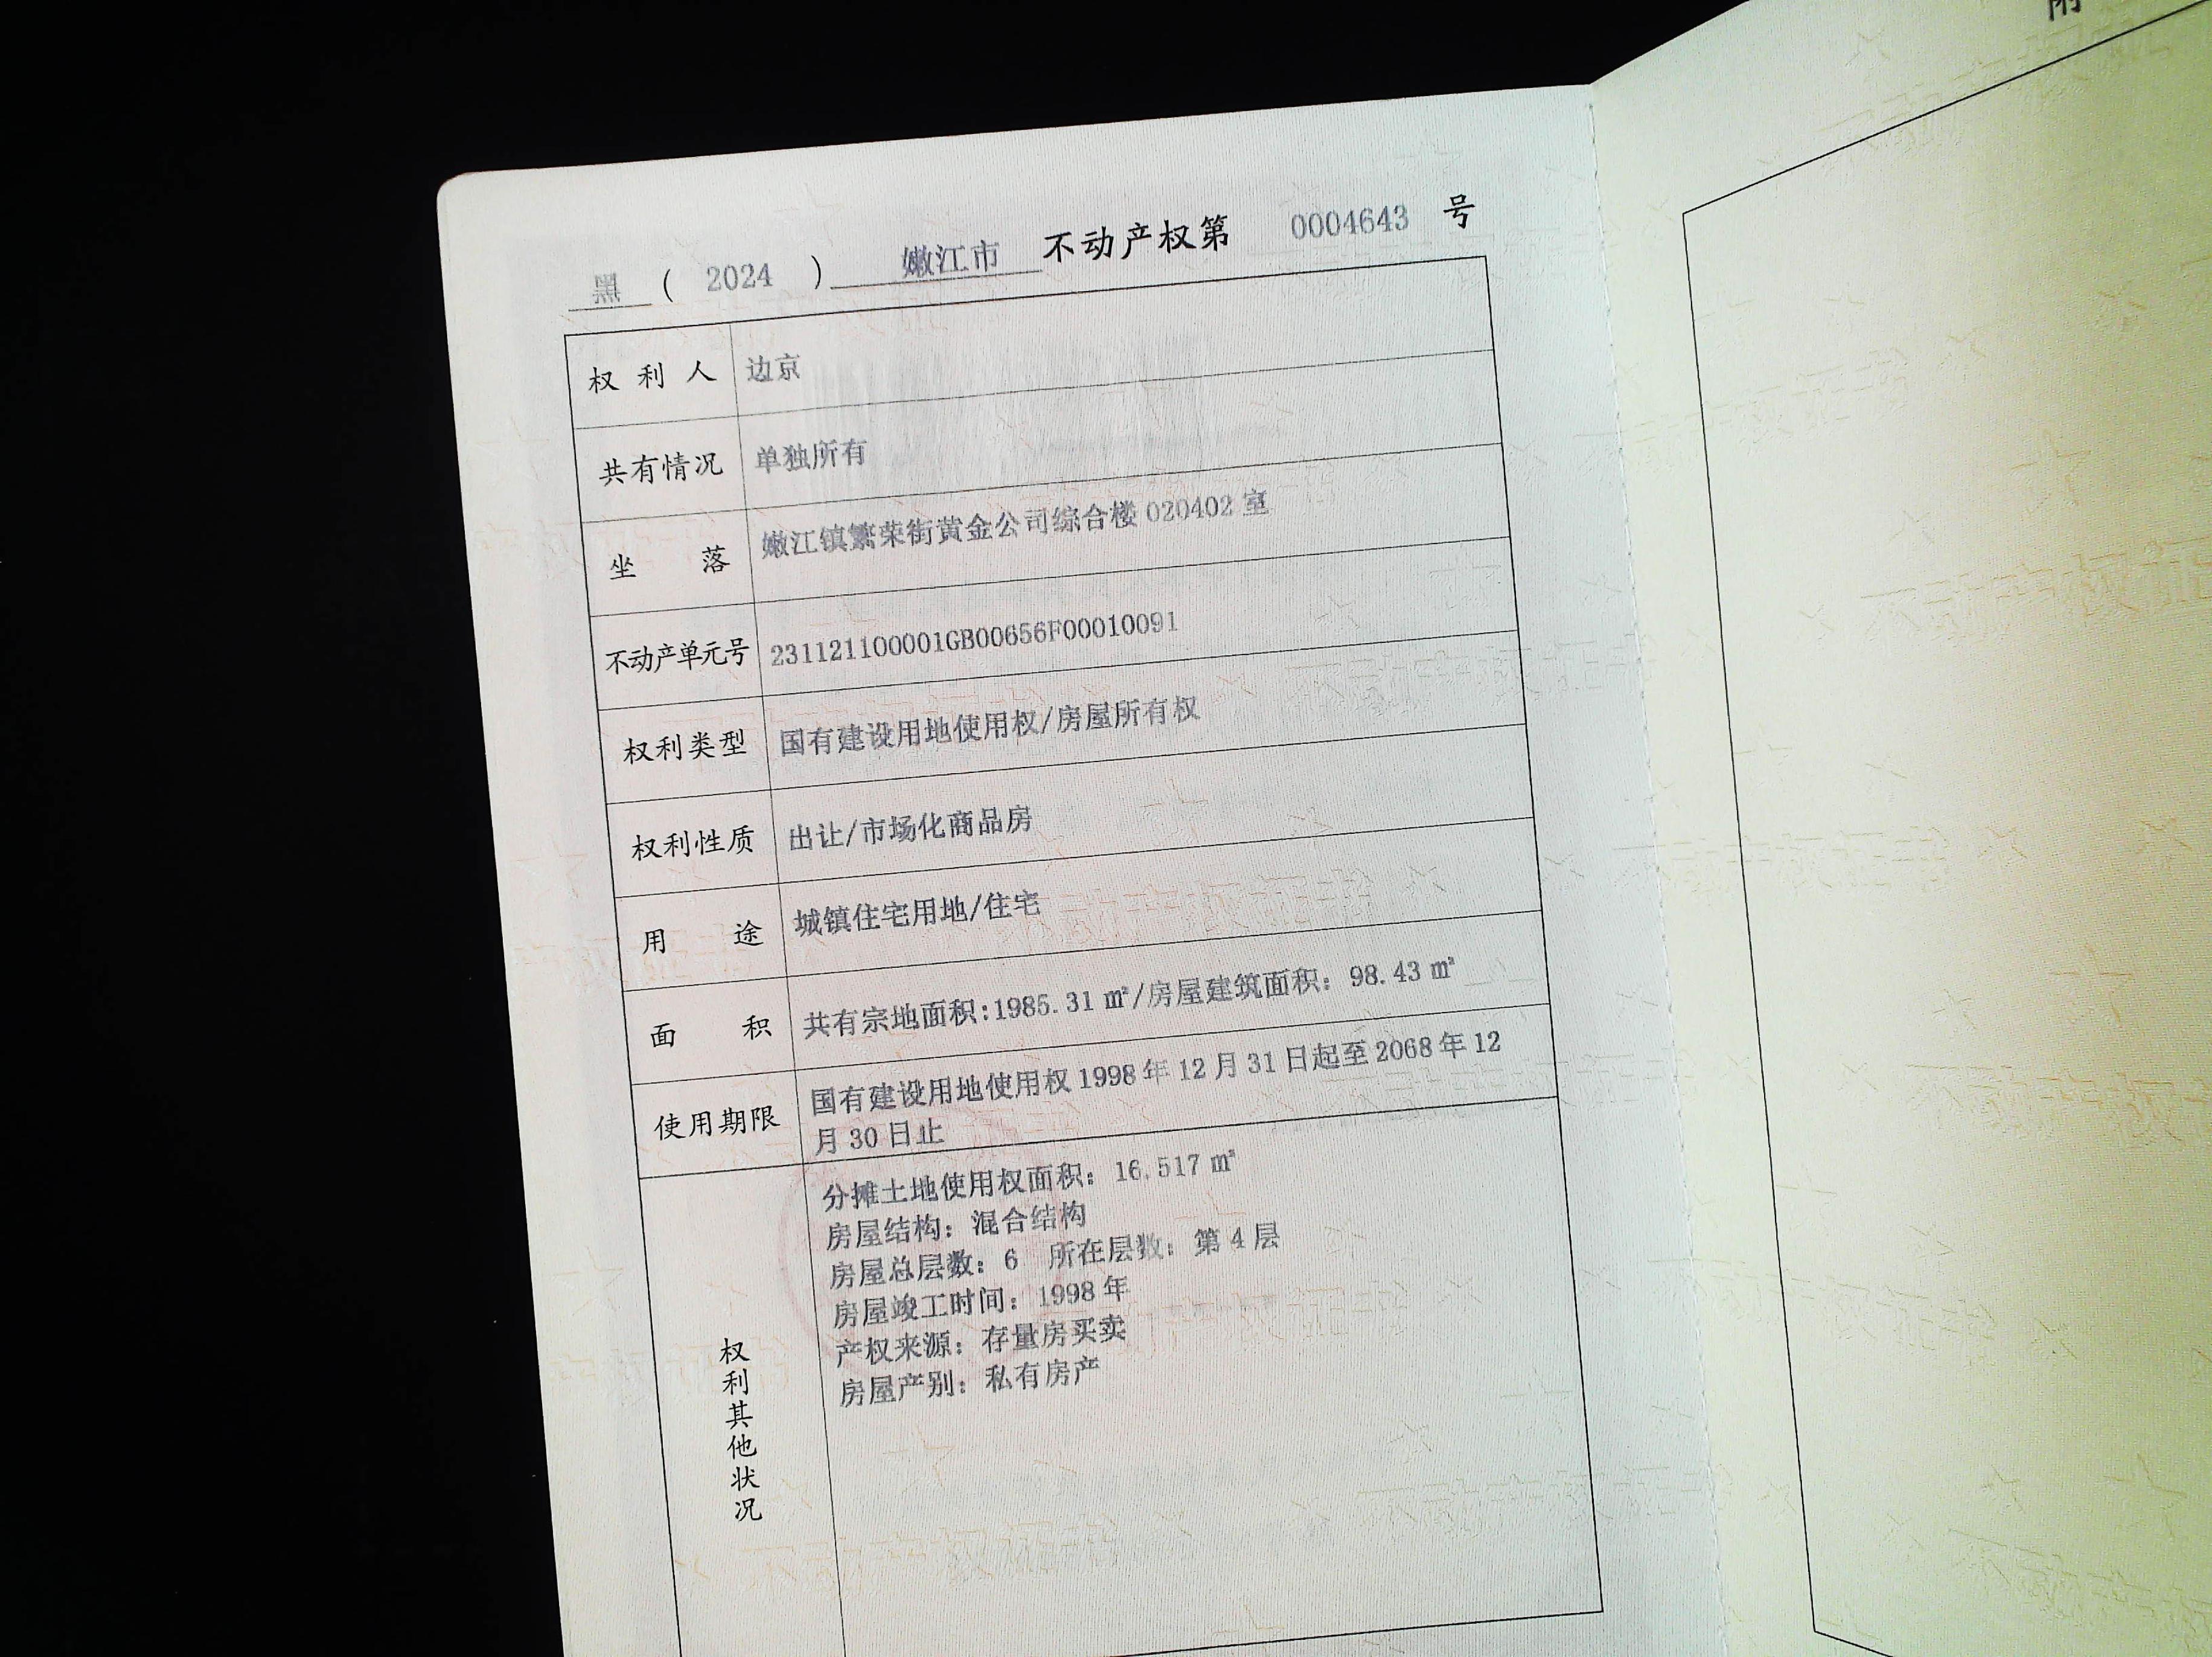 附
黑 ( 2024 ) 嫩江市 不动产权第 0004643 号
权利人 边京
共有情况 单独所有
坐落 嫩江镇繁荣街黄金公司综合楼 020402 室
不动产单元号 231121100001GB00656F00010091
权利类型 国有建设用地使用权/房屋所有权
权利性质 出让/市场化商品房
用途 城镇住宅用地/住宅
面积 共有宗地面积:1985.31 ㎡/房屋建筑面积：98.43 ㎡
使用期限 国有建设用地使用权 1998 年 12 月 31 日起至 2068 年 12
月 30 日止
权利其他状况
分摊土地使用权面积：16.517 ㎡
房屋结构：混合结构
房屋总层数：6 所在层数：第 4 层
房屋竣工时间：1998 年
产权来源：存量房买卖
房屋产别：私有房产